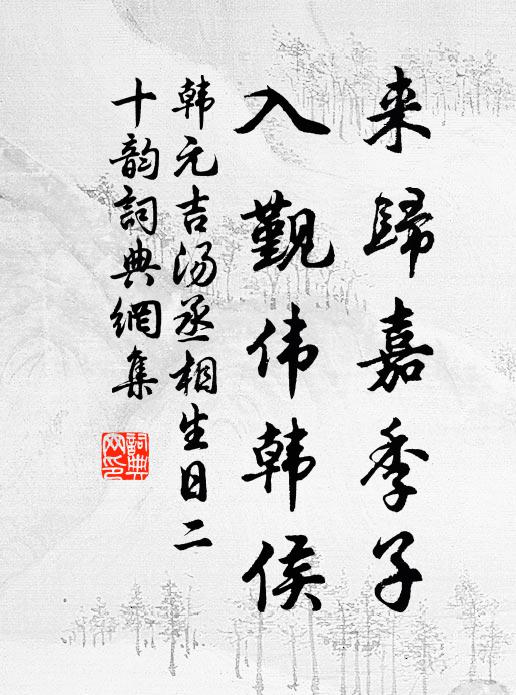 来歸嘉季子
入觐伟韩侯
韩元吉汤丞相生日二
十韵詞典網集
詞典
网印